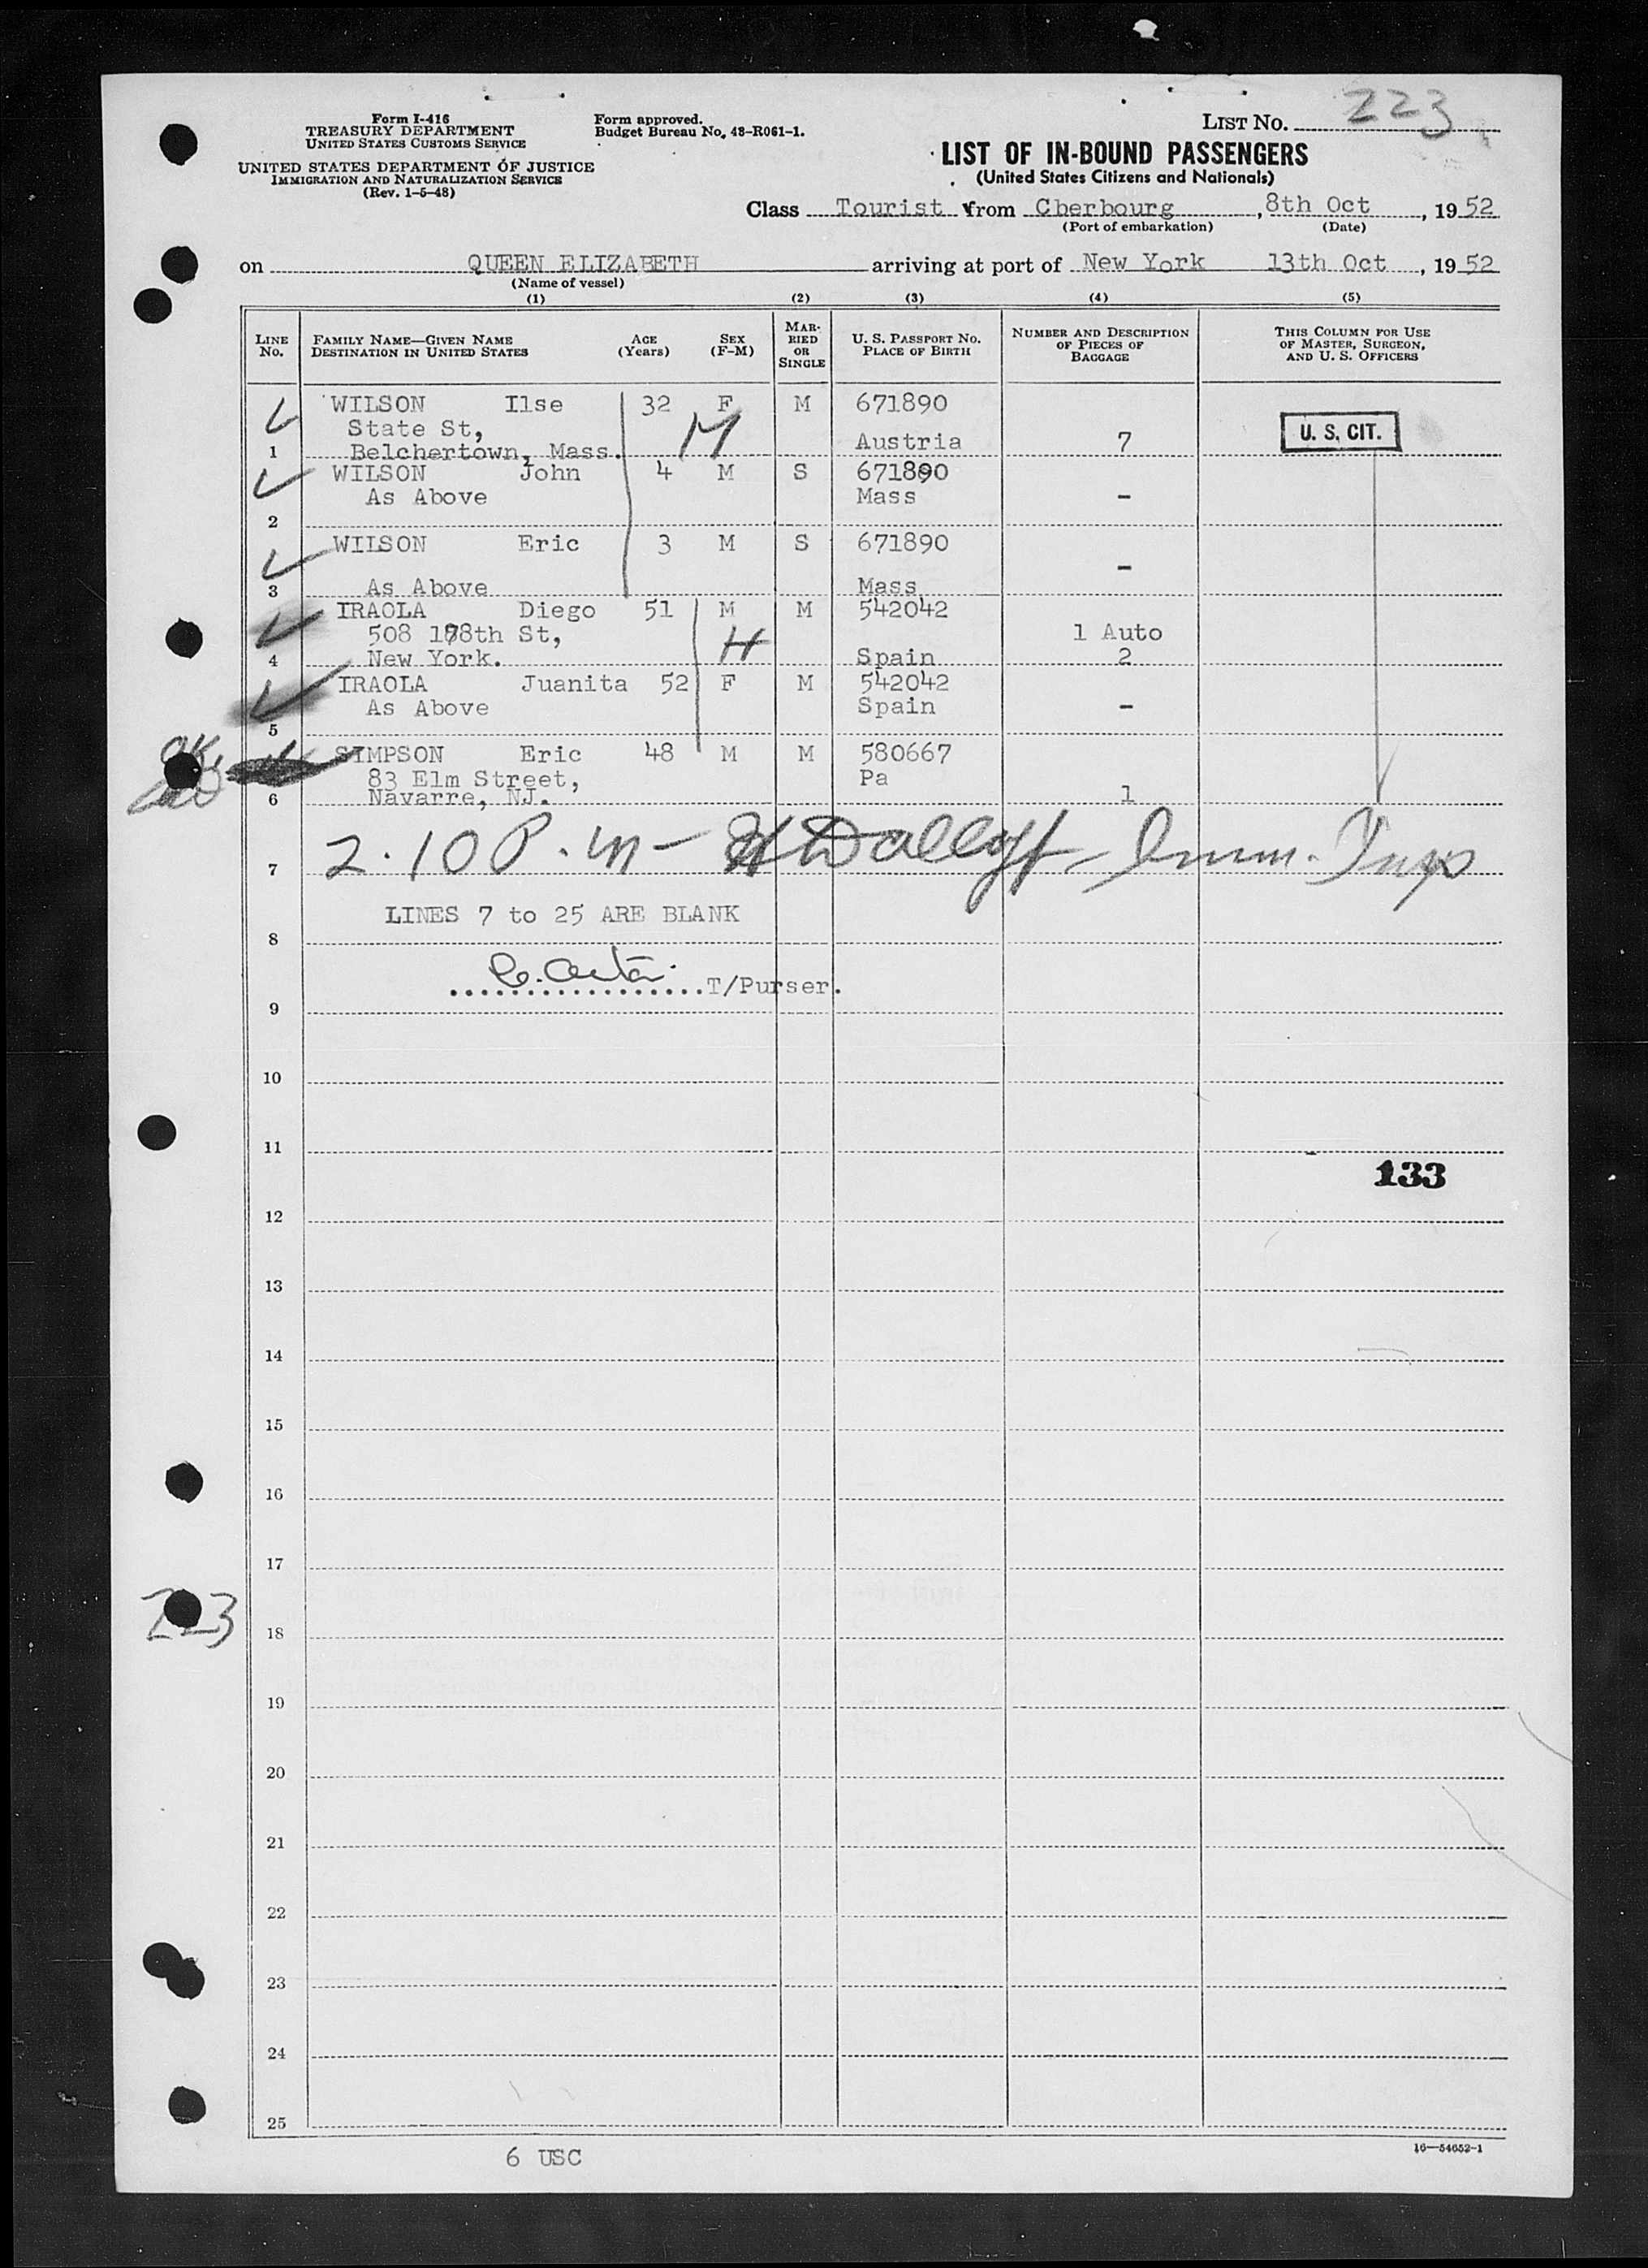 Form I-416
TREASURY DEPARTMENT
UNITED STATES CUSTOMS SERVICE
UNITED STATES DEPARTMENT OF JUSTICE
IMMIGRATION AND NATURALIZATION SERVICE
(Rev. 1-5-48)
Form approved.
Budget Bureau No. 48-R061-1.
LIST No. 223
LIST OF IN-BOUND PASSENGERS
(United States Citizens and Nationals)
Class Tourist from Cherbourg, 8th Oct, 1952
(Port of embarkation) (Date)
on QUEEN ELIZABETH arriving at port of New York 13th Oct, 1952
(Name of vessel)
(1) (2) (3) (4) (5)
LINE No. FAMILY NAME—GIVEN NAME DESTINATION IN UNITED STATES AGE (Years) SEX (F-M) MARRIED OR SINGLE U. S. PASSPORT No. PLACE OF BIRTH NUMBER AND DESCRIPTION OF PIECES OF BAGGAGE THIS COLUMN FOR USE OF MASTER, SURGEON, AND U. S. OFFICERS
WILSON Ilse 32 F M 671890
State St, M U. S. CIT.
1 Belchertown, Mass. Austria 7
WILSON John 4 M S 671890
As Above Mass -
2
WILSON Eric 3 M S 671890
-
3 As Above Mass
IRAOLA Diego 51 M M 542042
508 178th St, H 1 Auto
4 New York. Spain 2
IRAOLA Juanita 52 F M 542042
As Above Spain -
5
OK SIMPSON Eric 48 M M 580667
83 Elm Street, Pa
6 Navarre, NJ. 1
7 2.10 P.m - Imm. Insp
LINES 7 to 25 ARE BLANK
8
T/Purser.
9
10
11
133
12
13
14
15
16
17
223
18
19
20
21
22
23
24
25
6 USC
16—54652-1